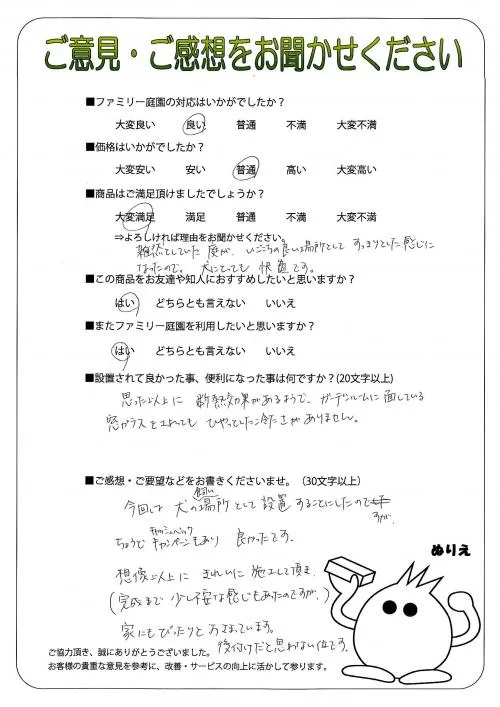 ご意見・ご感想をお聞かせください
■ファミリー庭園の対応はいかがでしたか？
大変良い 良い 普通 不満 大変不満
■価格はいかがでしたか？
大変安い 安い 普通 高い 大変高い
■商品はご満足頂けましたでしょうか？
大変満足 満足 普通 不満 大変不満
⇒よろしければ理由をお聞かせください。
雑然としていた庭が、いごこちの良い場所として すっきりとした感じに
なったので。犬にとっても 快適です。
■この商品をお友達や知人におすすめしたいと思いますか？
はい どちらとも言えない いいえ
■またファミリー庭園を利用したいと思いますか？
はい どちらとも言えない いいえ
■設置されて良かった事、便利になった事は何ですか？(20文字以上)
思った以上に 断熱効果があるようで、ガーデンルームに面している
窓ガラスをさわっても ひやっとした冷たさがありません。
■ご感想・ご要望などをお書きくださいませ。（30文字以上）
飼い
今回は 犬の場所として設置することにしたので
すが、
キャッシュバック
ちょうど キャンペーンもあり 良かったです。
想像以上に きれいに 施工して頂き、
(完成まで 少し不安な感じもあったのですが、)
家にもぴったりと おさまっています。
後付けだと思わない位です。
ぬりえ
ご協力頂き、誠にありがとうございました。
お客様の貴重な意見を参考に、改善・サービスの向上に活かして参ります。